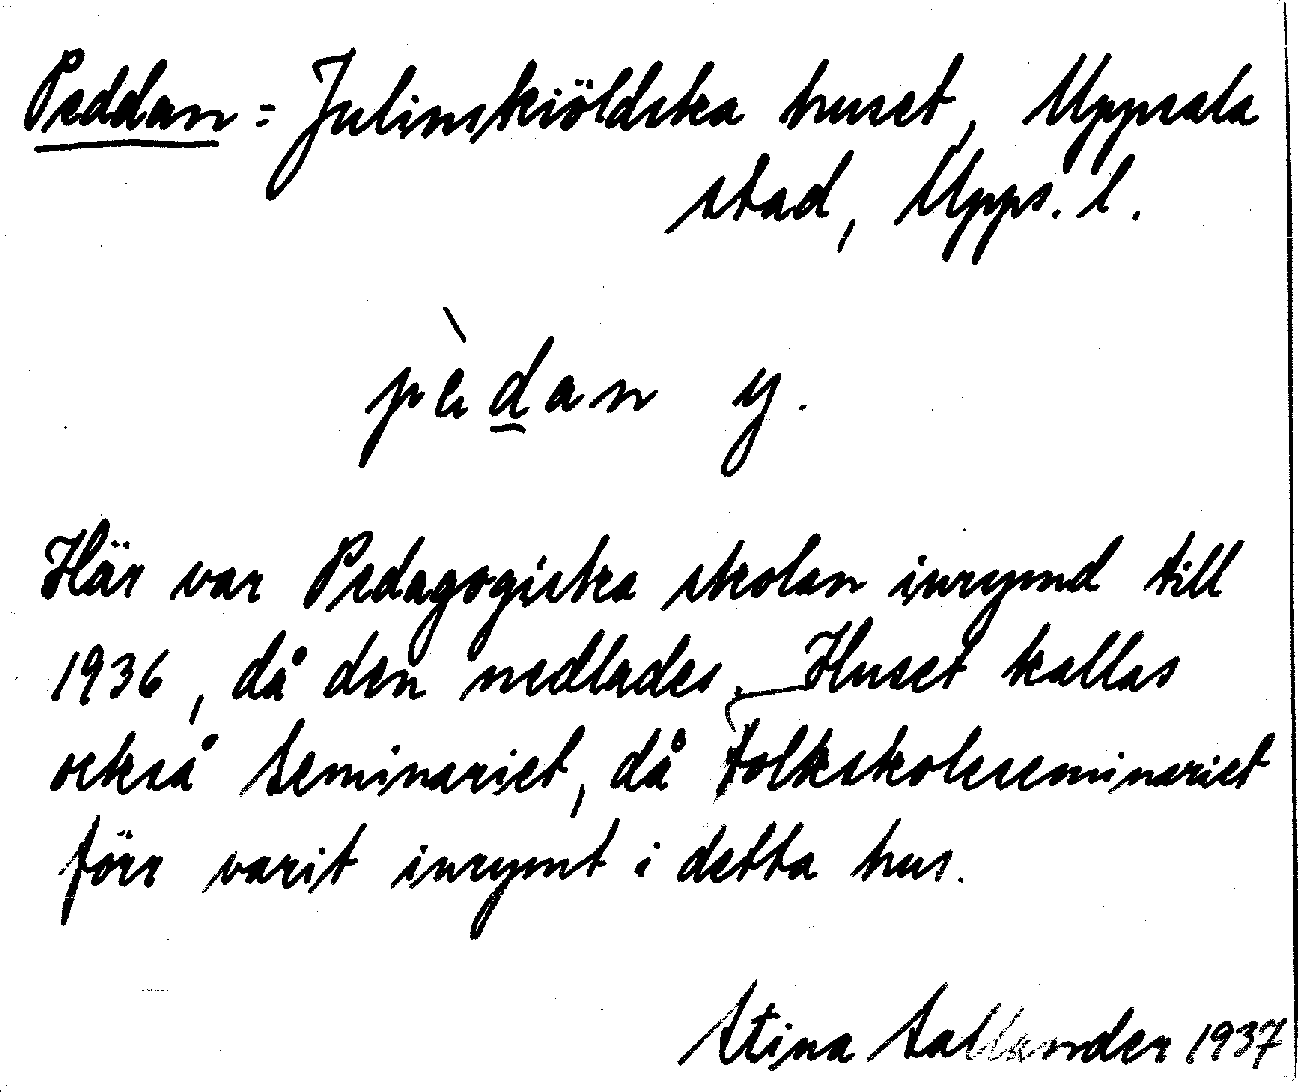 Peddan = Julinskiöldska huset, Uppsala
stad, Upps. l.
pèdan y.
Här var Pedagogiska skolan inrymd till
1936, då den nedlades. Huset kallas
också Seminariet, då folkskoleseminariet
förr varit inrymt i detta hus.
Stina Sallander 1937